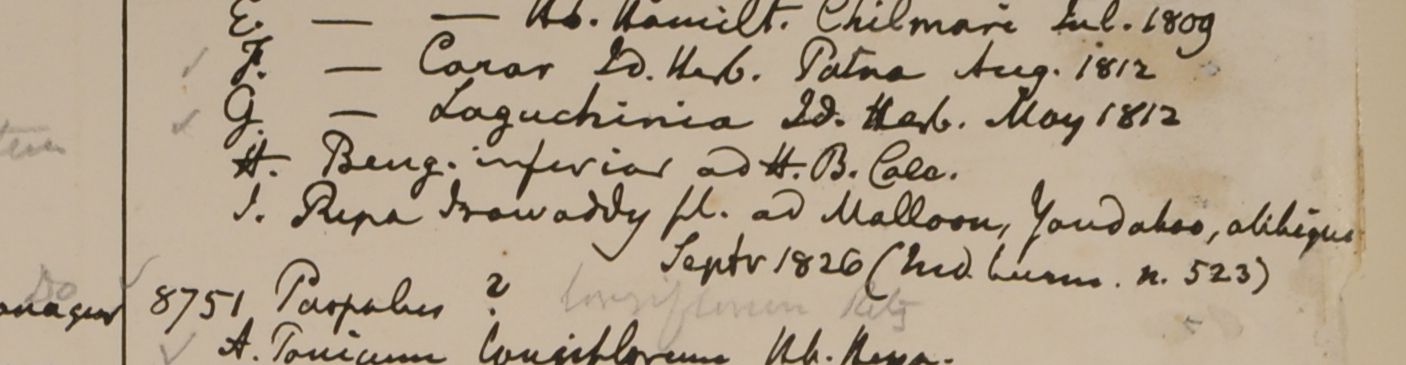 E. — — Hb. Hamilt. Chilmari Jul. 1809
F. — Corar Id. Herb. Patna Aug. 1812
G — Laguchinia Id. Herb. May 1812
H. Beng. inferior ad H. B. Calc.
I. Ripa Irawaddy fl. ad Malloon, Yandaboo, alibique
Septr 1826 (Ind. burm. n. 523)
8751 Paspalus ? longiflorum Retz
A. Panicum longiflorum Hb.